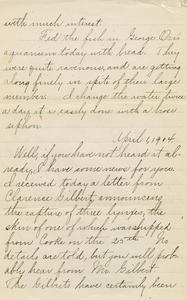 with much interest.
Fed the fish in George Orr's
aquarium today with bread. They
were quite ravenous, and are getting
along finely in spite of their large
number. I change the water twice
a day, it is easily done with a hose
siphon.
April 1, 1904
Well, if you have not heard it al-
ready, I have some news for you.
I received today a letter from
Clarence Gilbert announcing
the capture of three lynxes, the
skin of one of which was shipped
from Cooke on the 25th. No
details are told, but you will prob-
ably hear from Mr. Gilbert.
The Gilberts have certainly been